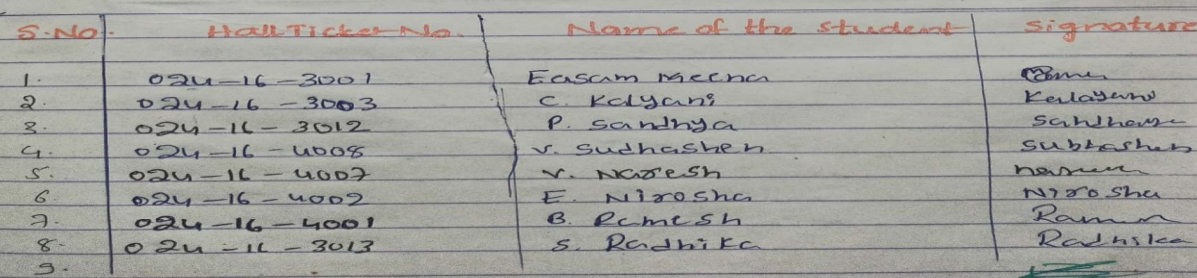 S.No. Hall Ticket No. Name of the student Signature
1. 024-16-3001 Easam Meena
2. 024-16-3003 C. Kalyani Kalayani
3. 024-16-3012 P. Sandhya Sandhaya
4. 024-16-4008 V. Sudhashen
5. 024-16-4007 V. Naresh
6. 024-16-4002 E. Nirosha Nirosha
7. 024-16-4001 B. Ramesh
8. 024-16-3013 S. Radhika Radhika
9.